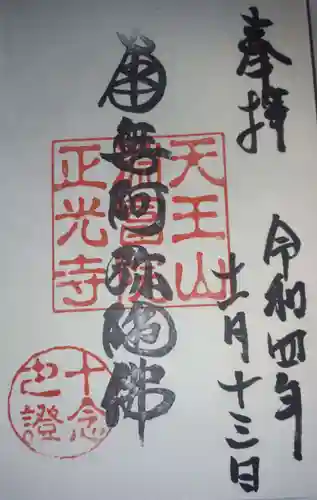 奉拝
令和四年
十一月十三日
南無阿弥陀佛
天王山
正光寺
十念
之證